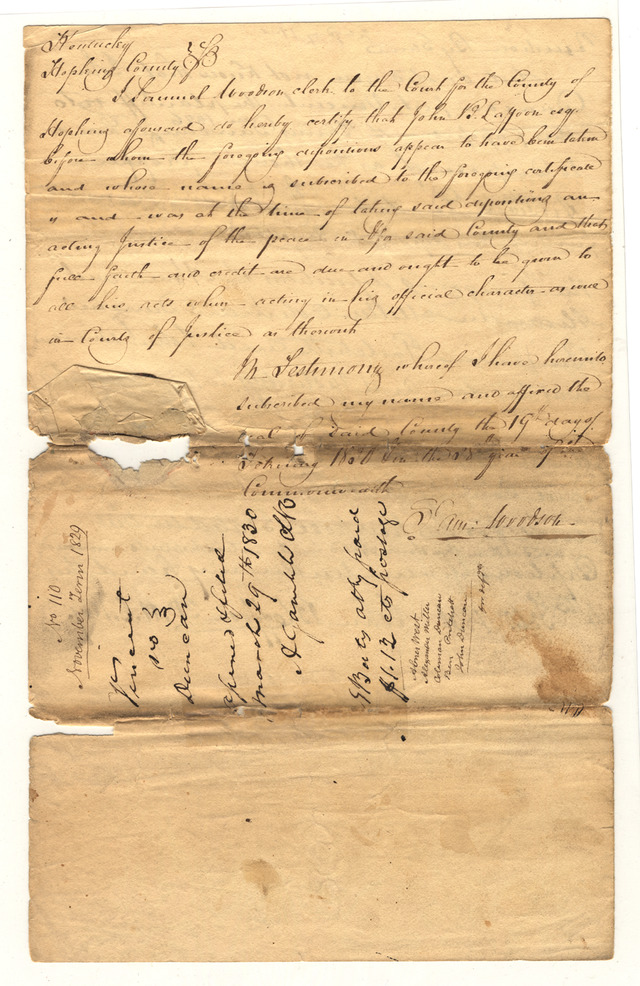 Kentucky
Hopkins County
I Samuel Woodson clerk to the Court for the County of
Hopkins aforesaid do hereby certify that John B. Laffoon esqr
before whom the foregoing depositions appear to have been taken
and whose name is subscribed to the foregoing certificate
" and was at the time of taking said depositions an
acting Justice of the peace in & for said County and that
full faith and credit are due and ought to be given to
all his acts when acting in his official character as well
in Courts of Justice as thereout
In Testimony whereof I have hereunto
subscribed my name and affixed the
seal of said County the 19th day of
1830 in the year of
Commonwealth
Sam: Woodson
No 110
November Term 1829
Vincent
vs
Duncan
opened & filed
March 29th 1830
A Gamble
Baty atty paid
$1.12 cts postage
Abner West
Alexander Miller
Coleman Duncan
Ben Pritchett
John Duncan
for deft